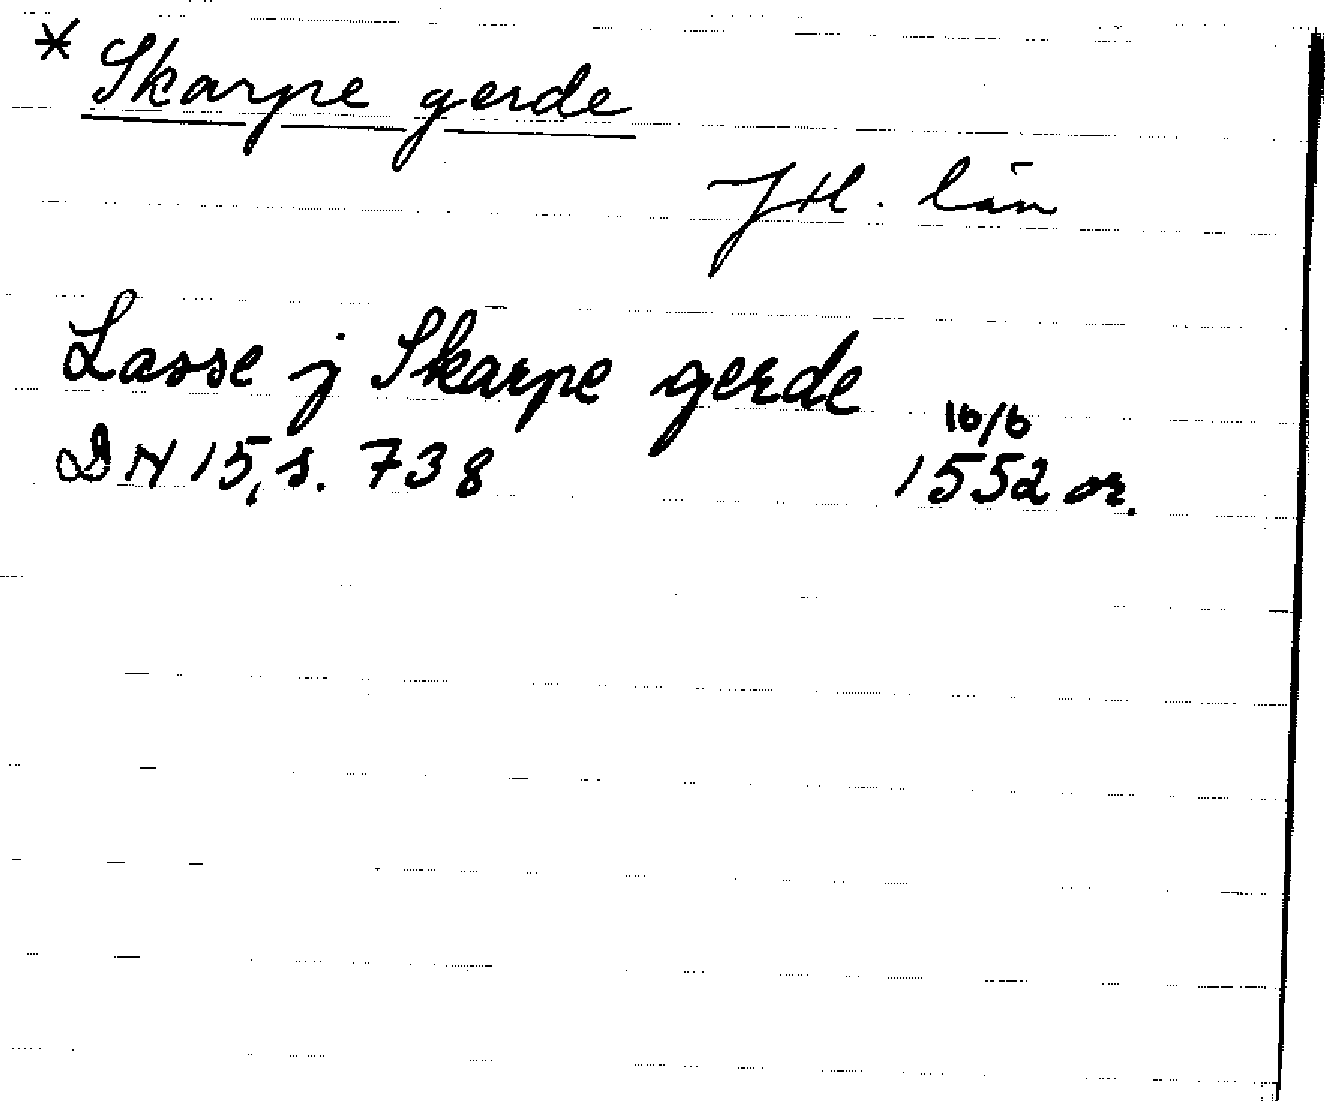 * Skarpe gerde
Jtl. län
Lasse j Skarpe gerde
16/6
DN 15, s. 738 1552 or.